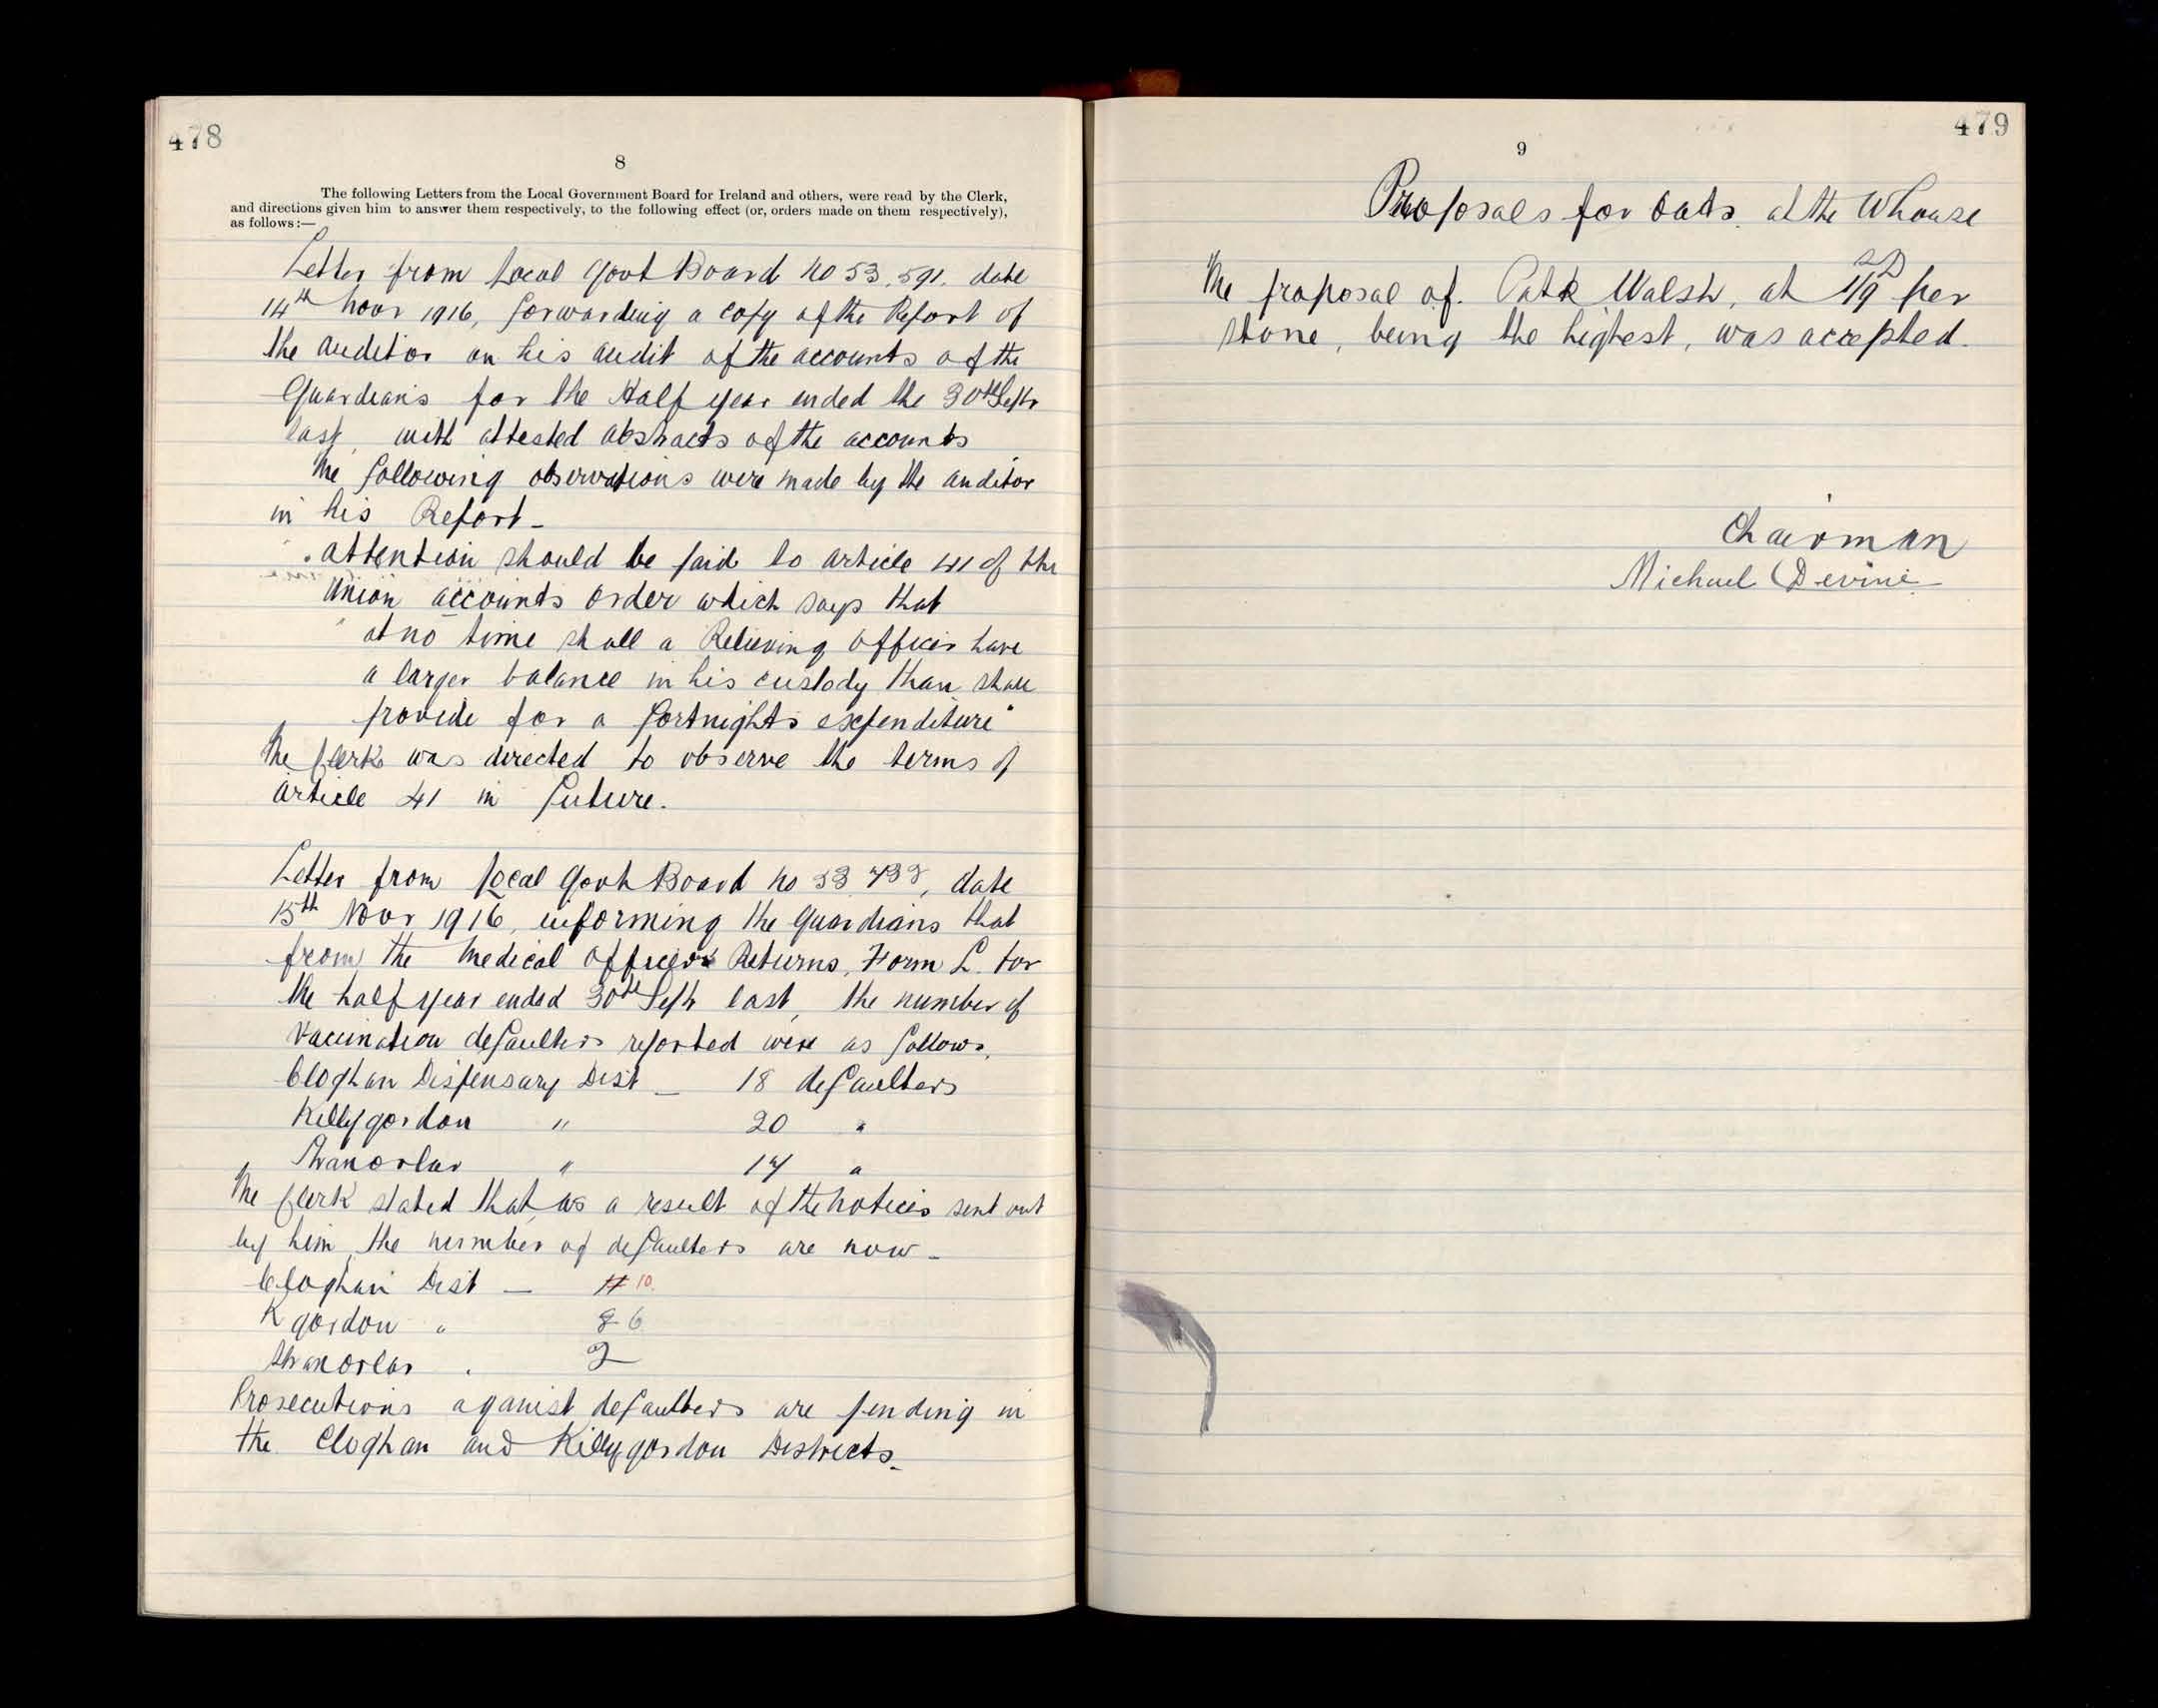 478
8
The following Letters from the Local Government Board for Ireland and others, were read by the Clerk,
and directions given him to answer them respectively, to the following effect (or, orders made on them respectively),
as follows:—
Letter from Local Govt Board No 53,591, date
14th Novr 1916, forwarding a copy of the Report of
the Auditor on his audit of the accounts of the
Guardians for the Half year ended the 30th Septr
last, with attested abstracts of the accounts
The following observations were made by the auditor
in his Report-
"Attention should be paid to article 41 of the
Union accounts order which says that
"at no time shall a Relieving Officer have
a larger balance in his custody than shall
provide for a fortnights expenditure"
The Clerk was directed to observe the terms of
article 41 in future.
Letter from Local Govt Board No 53 733, date
15th Novr 1916, informing the Guardians that
from the Medical Officers Returns, Form L. for
the half year ended 30th Septr last, the number of
Vaccination defaulters reported were as follows,
Cloghan Dispensary Dist — 18 defaulters
Killygordon " 20 "
Stranorlar " 14 "
The Clerk stated that, as a result of the notices sent out
by him, the number of defaulters are now -
Cloghan Dist — 10.
K gordon " 6
Stranorlar . 2
Prosecutions against defaulters are pending in
the Cloghan and Killygordon Districts.
479
9
Proposals for Oats. at the Whouse
The proposal of. Patk Walsh, at 1/9 per
stone, being the highest, was accepted.
Chairman
Michael Devine